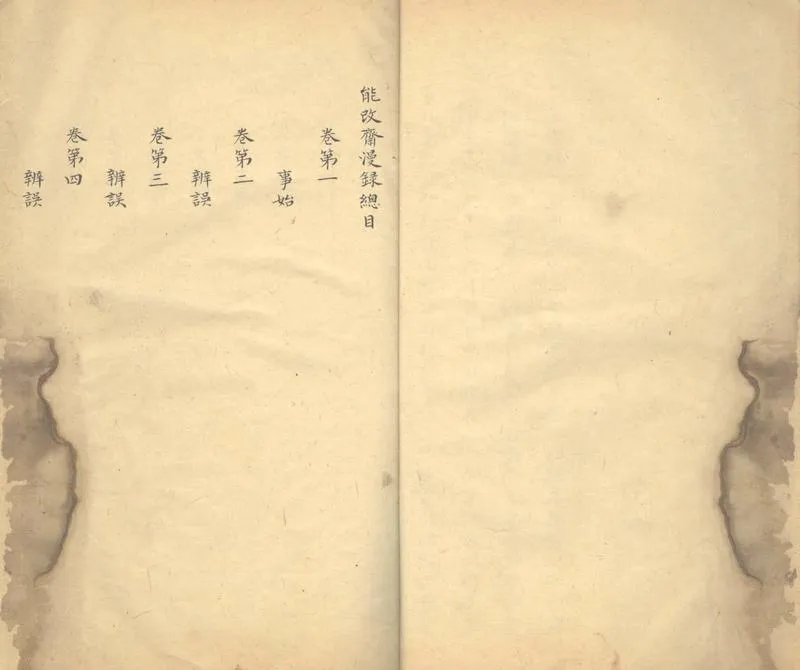 能改齋漫録總目
卷第一
事始
卷第二
辨誤
卷第三
辨誤
卷第四
辨誤